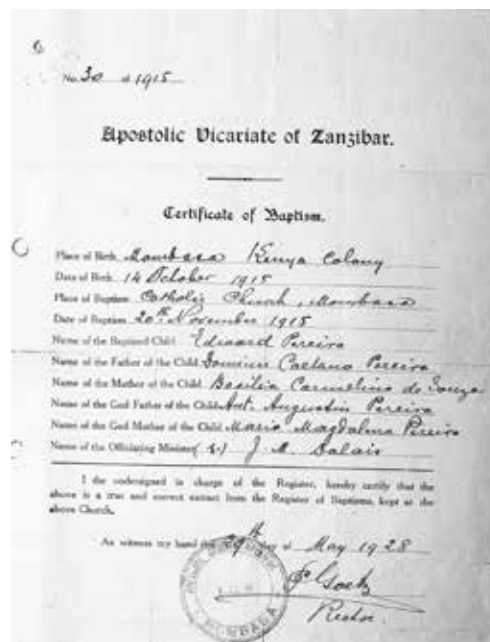 No. 30 of 1915
Apostolic Vicariate of Zanzibar.
Certificate of Baptism.
Place of Birth Mombasa Kenya Colony
Date of Birth 14 October 1915
Place of Baptism Catholic Church, Mombasa
Date of Baptism 20th November 1915
Name of the Baptised Child Edward Pereira
Name of the Father of the Child Dominic Caetano Pereira
Name of the Mother of the Child Basilia Carmelina de Souza
Name of the God Father of the Child Ant. Augustin Pereira
Name of the God Mother of the Child Maria Magdalina Pereira
Name of the Officiating Minister (s.) J. M. Balais
I the undersigned in charge of the Register, hereby certify that the
above is a true and correct extract from the Register of Baptisms, kept at the
above Church.
As witness my hand this 29th day of May 1928
Rector.
MOMBASA